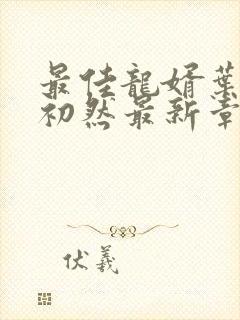 最佳龍婿葉
初然最新章
伏羲